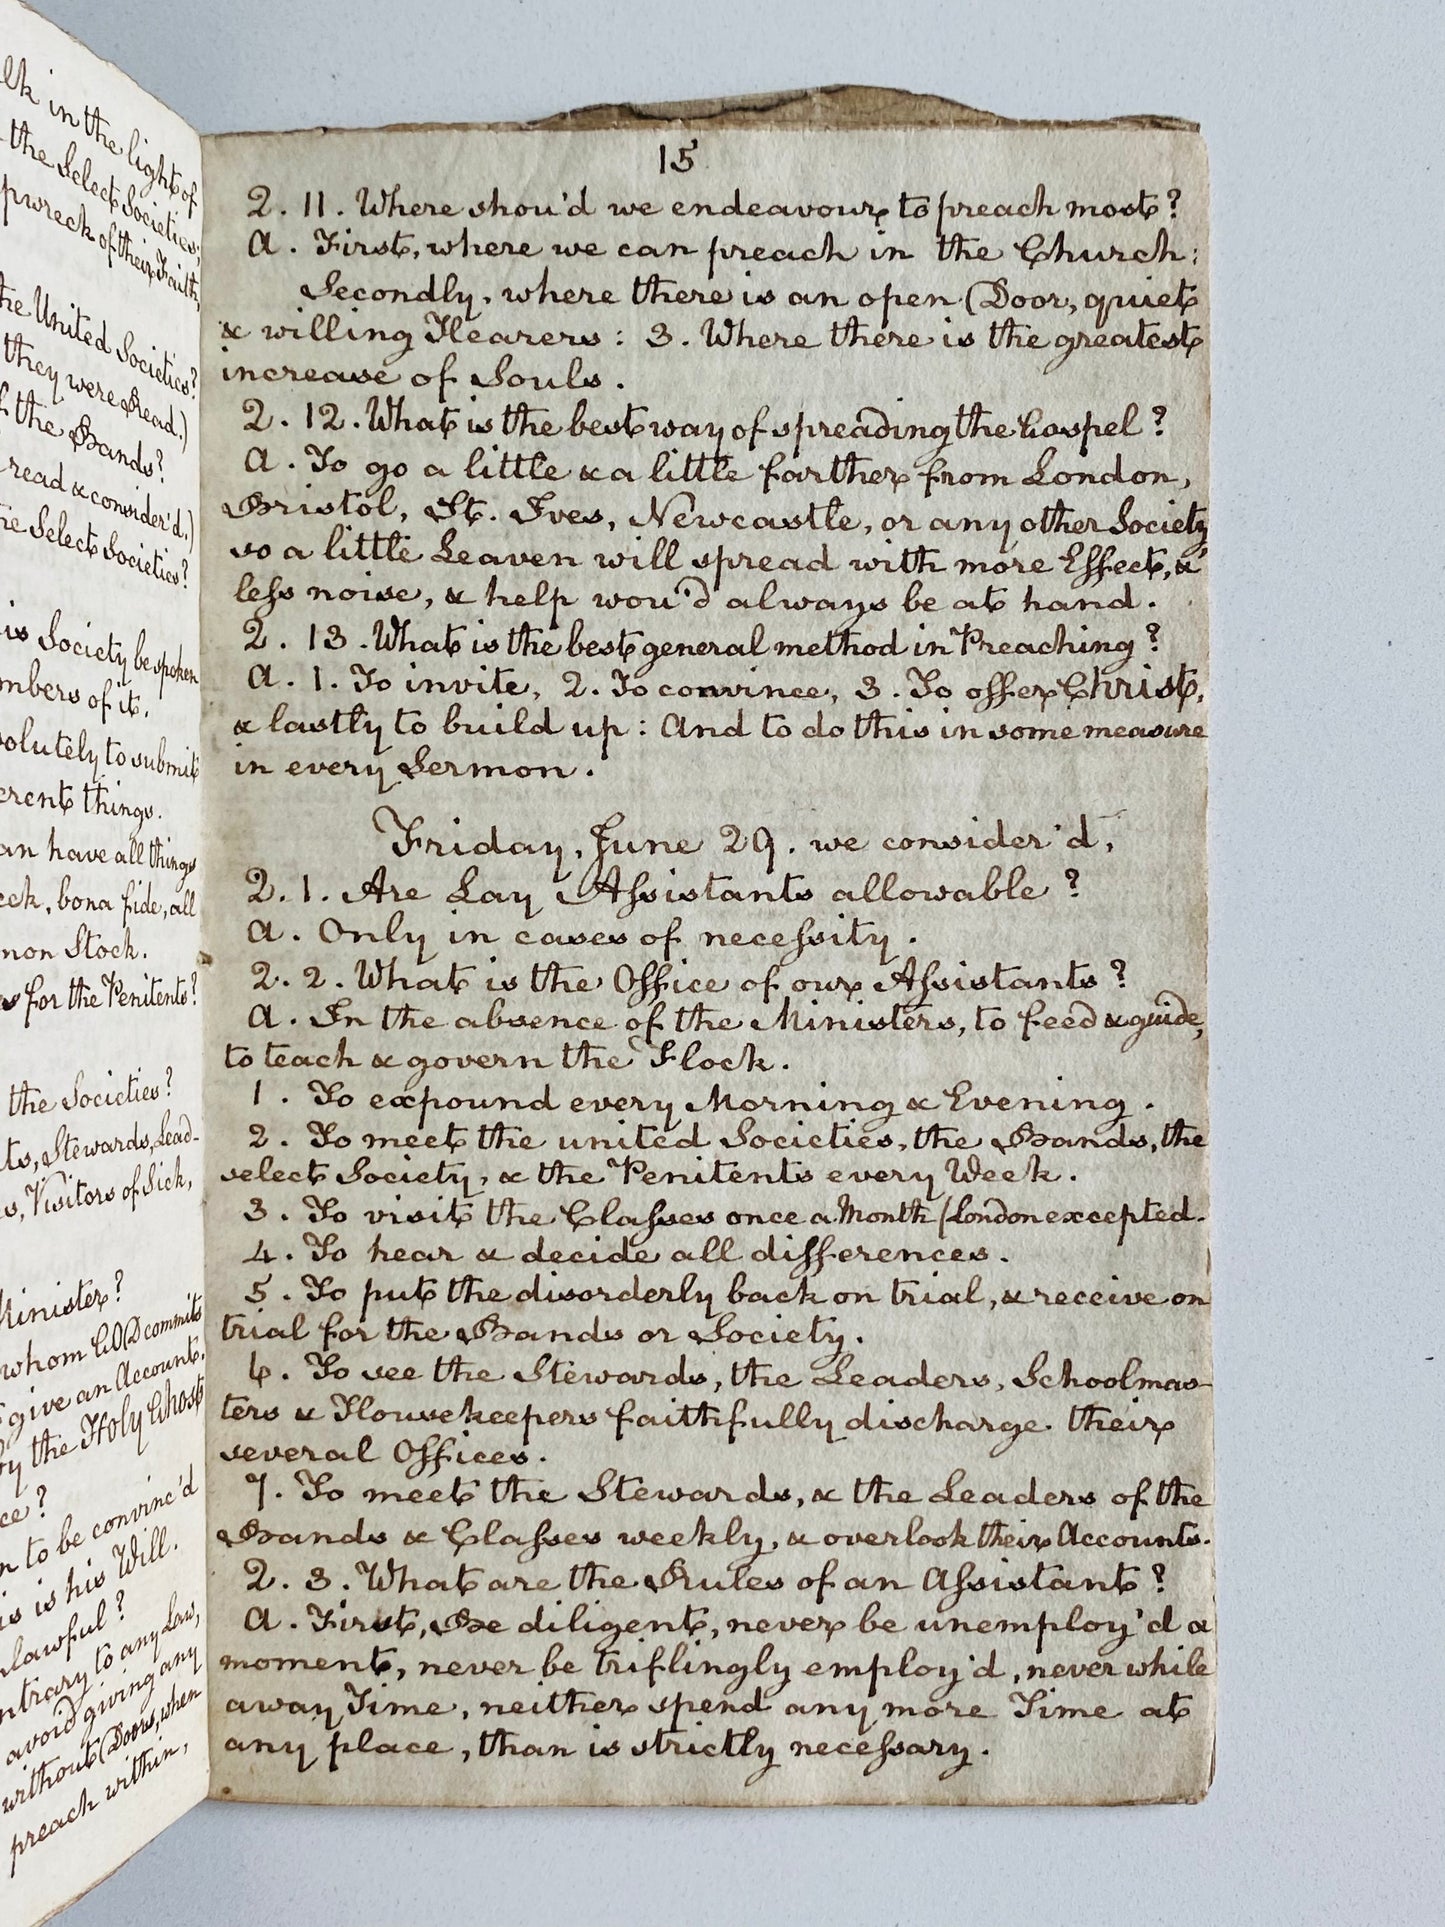 lk in the light of
the Select Societies;
pwreck of their Faith,
he United Societies?
they were Read.)
f the Bands?
read & consider'd.)
he Select Societies?
is Society be spoken
mbers of it.
solutely to submit
erent things.
an have all things
eek, bona fide, all
mon Stock.
s for the Penitents?
the Societies?
ts, Stewards, Lead-
s, Visitors of Sick,
Minister?
whom GOD commits
give an Account.
by the Holy Ghost
ce?
n to be convinc'd
is is his Will.
nlawful?
ntrary to any Law,
avoid giving any
without Doors, when
preach within,
15
2. 11. Where shou'd we endeavour to preach most?
A. First, where we can preach in the Church:
Secondly, where there is an open Door, quiet
& willing Hearers: 3. Where there is the greatest
increase of Souls.
2. 12. What is the best way of spreading the Gospel?
A. To go a little & a little farther from London,
Bristol, St. Ives, Newcastle, or any other Society
so a little Leaven will spread with more Effect, &
leſs noise, & help wou'd always be at hand.
2. 13. What is the best general method in Preaching?
A. 1. To invite, 2. To convince, 3. To offer Christ,
& lastly to build up: And to do this in some measure
in every Sermon.
Friday, June 29. we consider'd,
2. 1. Are Lay Aſsistants allowable?
A. Only in cases of neceſsity.
2. 2. What is the Office of our Aſsistants?
A. In the absence of the Ministers, to feed & guide,
to teach & govern the Flock.
1. To expound every Morning & Evening.
2. To meet the united Societies, the Bands, the
select Society, & the Penitents every Week.
3. To visit the Claſses once a Month (London excepted.
4. To hear & decide all differences.
5. To put the disorderly back on trial, & receive on
trial for the Bands or Society.
6. To see the Stewards, the Leaders, Schoolmas-
ters & Housekeepers faithfully discharge their
several Offices.
7. To meet the Stewards, & the Leaders of the
Bands & Claſses weekly, & overlook their Accounts.
2. 3. What are the Rules of an Aſsistant?
A. First, Be diligent, never be unemploy'd a
moment, never be triflingly employ'd, never while
away Time, neither spend any more Time at
any place, than is strictly neceſsary.